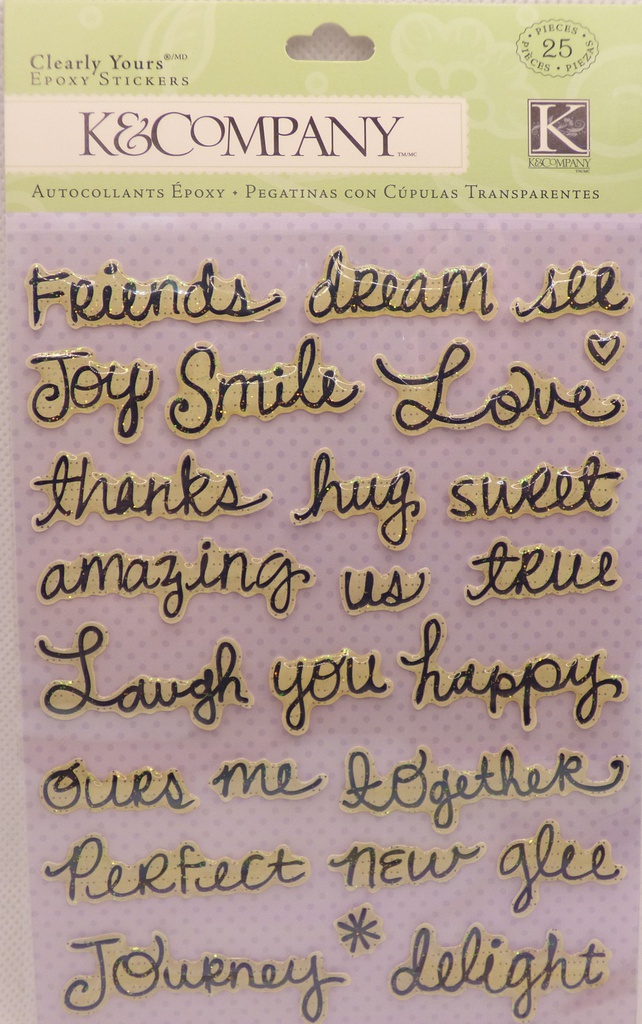 Clearly Yours®/MD
Epoxy Stickers
PIECES 25 PIÈCES • PIEZAS
K&COMPANY TM/MC
K
K&COMPANY
TM/MC
Autocollants Époxy • Pegatinas con Cúpulas Transparentes
Friends dream see
Joy Smile Love
thanks hug sweet
amazing us true
Laugh you happy
ours me together
Perfect new glee
Journey delight